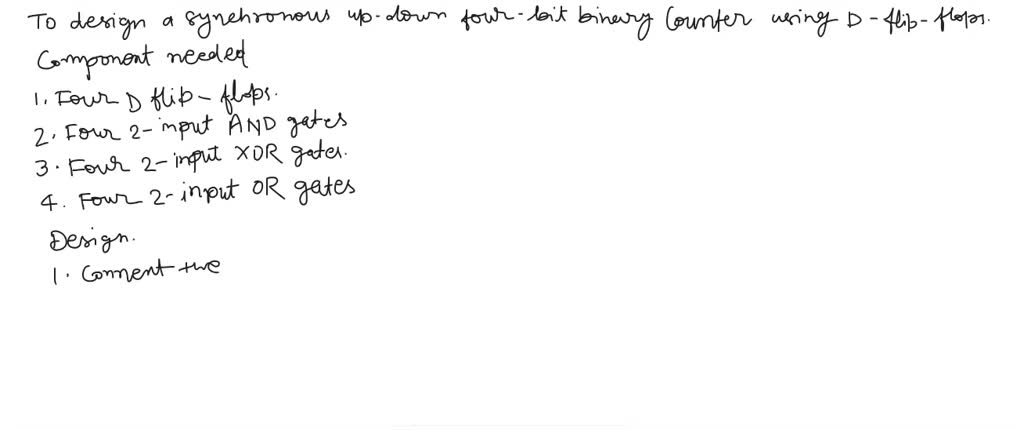 To design a synchronous up-down four-bit binary Counter using D-flip-flops.
Component needed
1. Four D flip-flops.
2. Four 2-input AND gates
3. Four 2-input XOR gates.
4. Four 2-input OR gates
Design.
1. Connent the